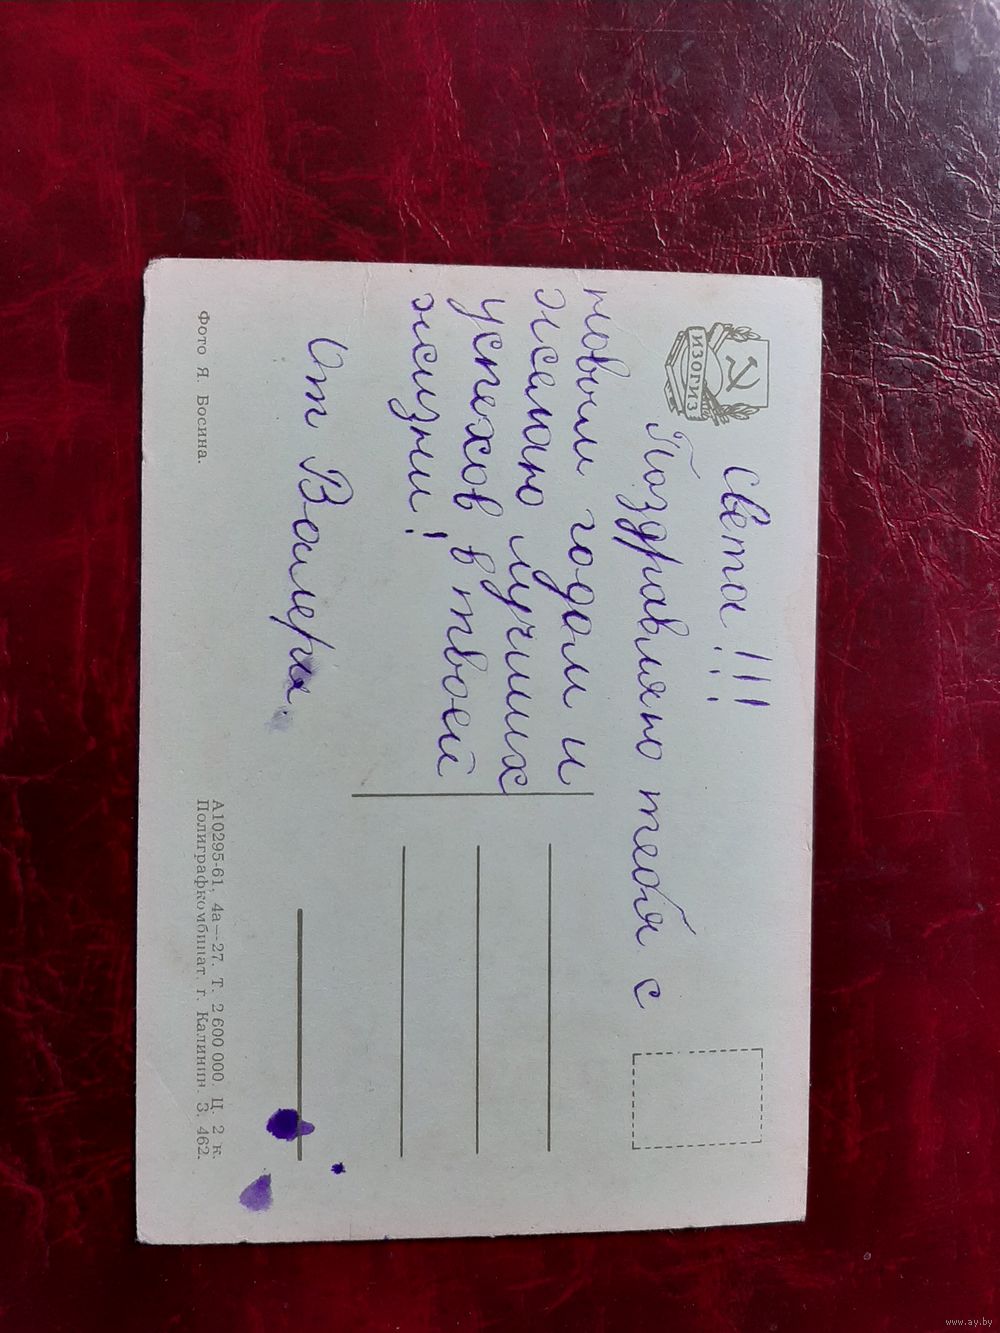 ИЗОГИЗ
Света!!!
Поздравляю тебя с
новым годом и
желаю лучших
успехов в твоей
жизни!
От Валеры.
Фото Я. Босина.
А10295-61, 4а—27. Т. 2 600 000. Ц. 2 к.
Полиграфкомбинат, г. Калинин. З. 462.
www.ay.by